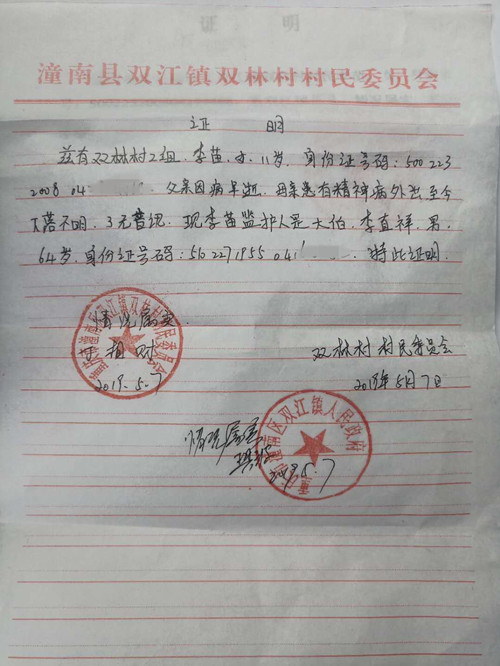 潼南县双江镇双林村村民委员会
证 明
兹有双林村2组，李苗，女，11岁，身份证号码：500223
2008 04 父亲因病早逝，母亲患有精神病外出至今
下落不明，3无音讯，现李苗监护人是大伯，李直祥，男，
64岁，身份证号码：5102271955 041 特此证明。
情况属实
2019.5.7
双林村村民委员会
2019年5月7日
情况属实
2019.5.7
潼南区双江镇双林村村民委员会
潼南区双江镇人民政府